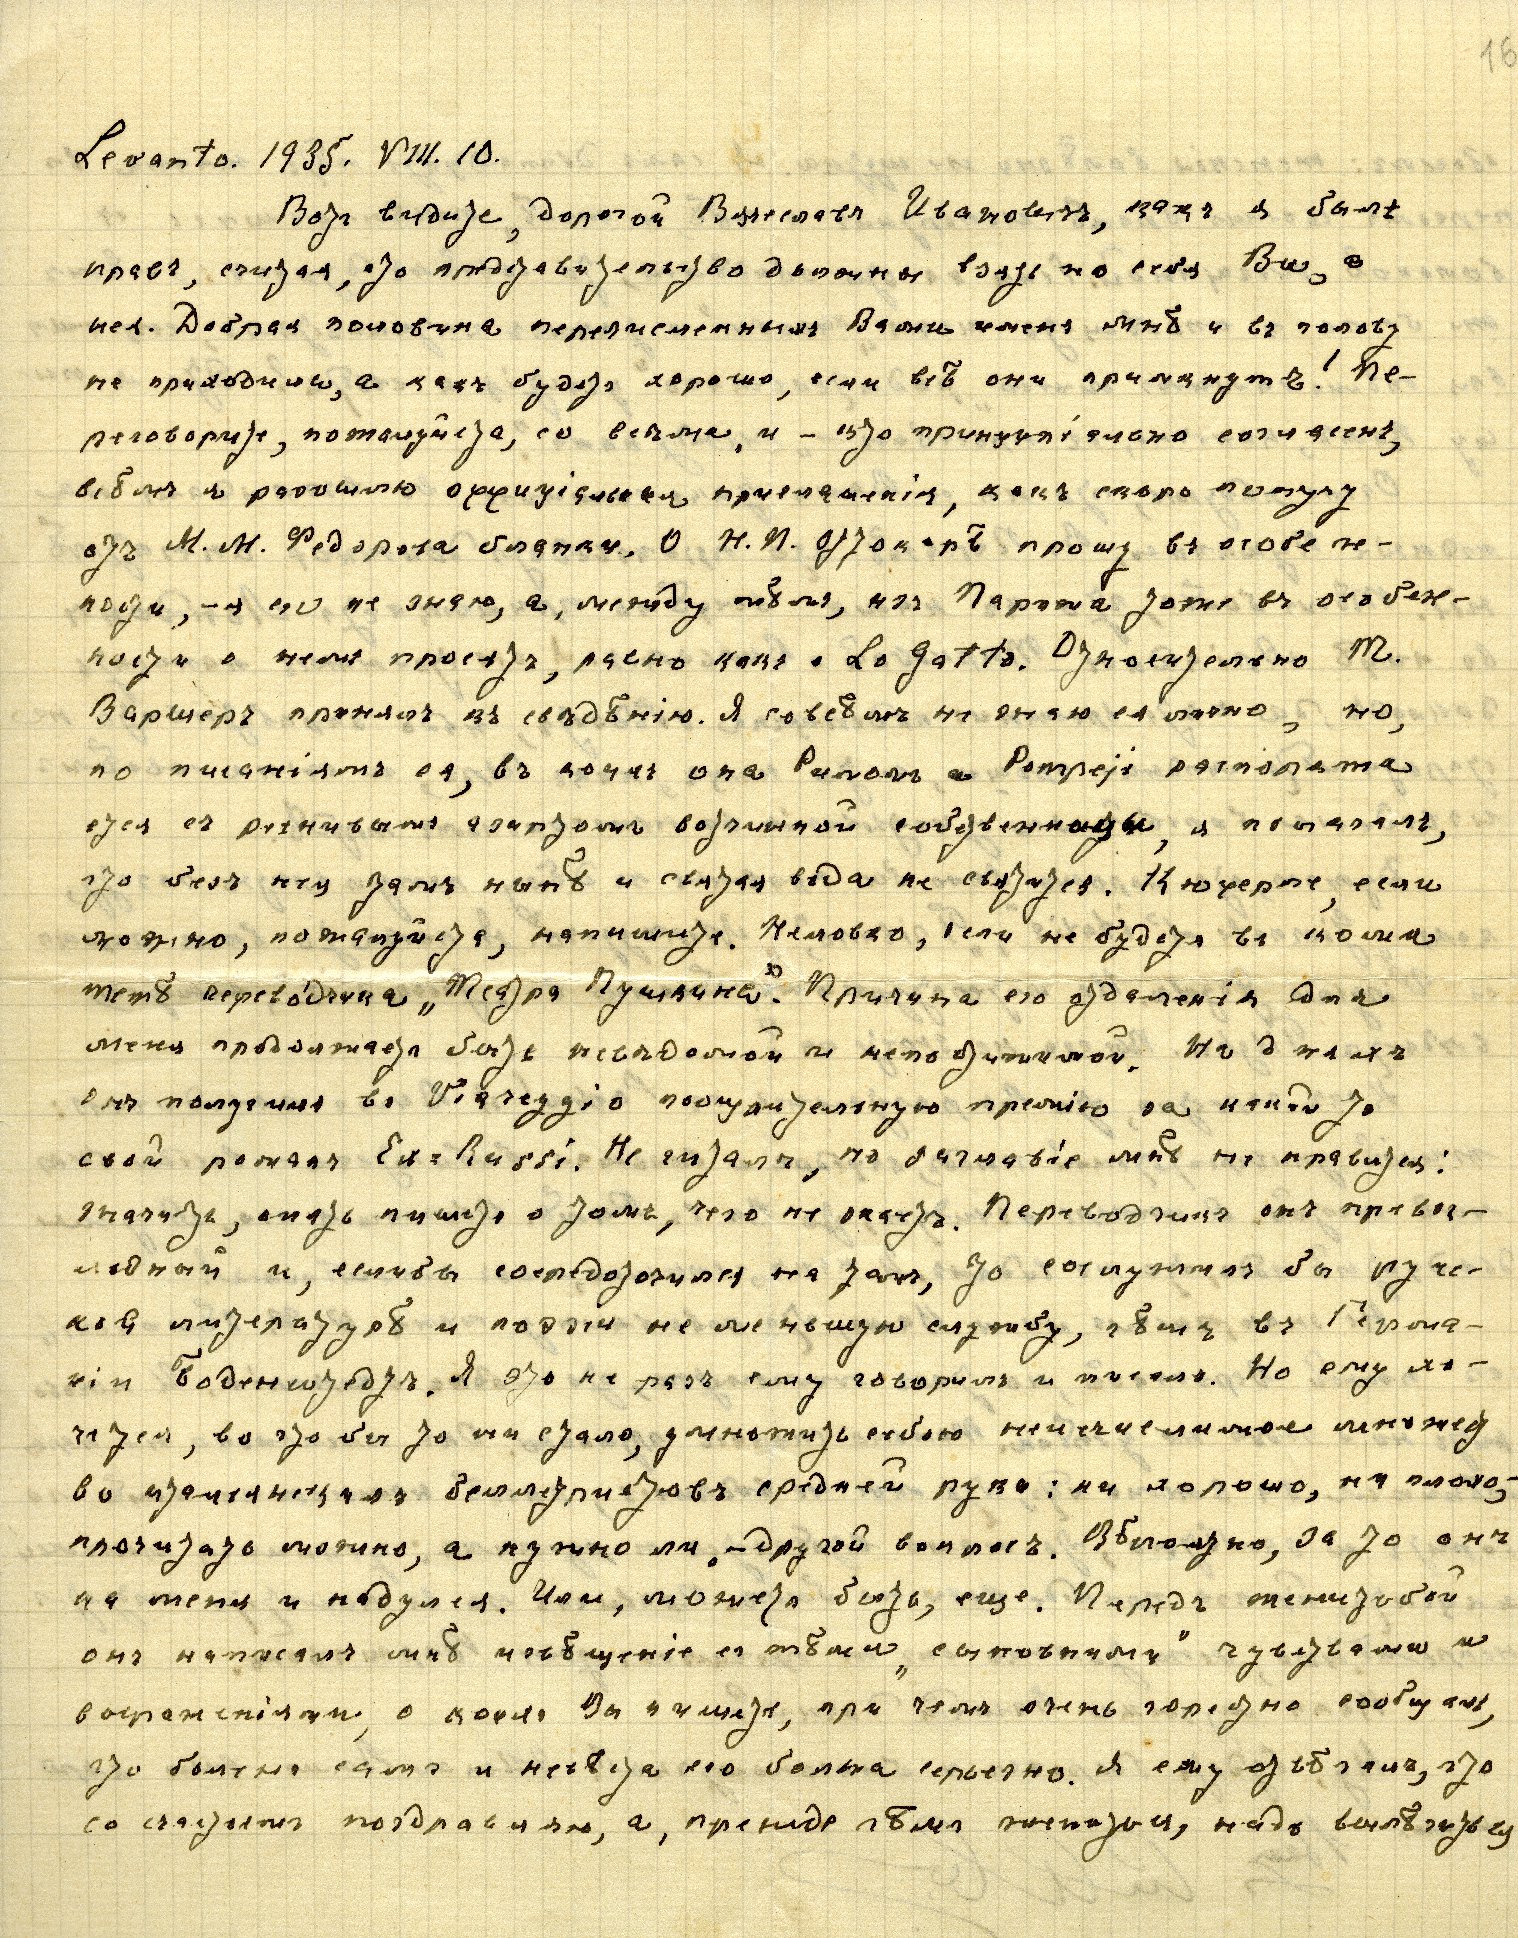 16
Levanto. 1935. VIII. 10.
Вотъ видите, дорогой Вячеславъ Ивановичъ, какъ я былъ
правъ, считая, что представительство должны взять на себя Вы, а
не я. Добрая половина перечисленныхъ Вами именъ мнѣ и въ голову
не приходили, а какъ будетъ хорошо, если всѣ они примкнутъ! Пе-
реговорите, пожалуйста, со всѣми, и – кто принципіально согласенъ,
всѣмъ я разошлю оффиціальныя приглашенія, какъ скоро получу
отъ М. М. Федорова бланки. О Н. П. Оттокарѣ прошу въ особен-
ности, – я его не знаю, а, между тѣмъ, изъ Парижа тоже въ особен-
ности о немъ просятъ, равно какъ о Lo Gatto. Относительно М.
Варшеръ принялъ къ свѣдѣнію. Я совсѣмъ не знаю ея лично, но,
по писаніямъ ея, въ коихъ она Римомъ и Pompeji распоряжа
ется съ ревнивымъ азартомъ вотчинной собственности, я полагалъ,
что безъ нея тамъ нынѣ и святая вода не святится. Кюфферле, если
можно, пожалуйста, напишите. Неловко, если не будетъ въ коми
тетѣ переводчика „Театра Пушкина". Причина его отдаленія для
меня продолжаетъ быть невѣдомой и непостижимой. На дняхъ
онъ получилъ въ Viareggio поощрительную премію за какой то
свой романъ Ex-Russi. Не читалъ, но заглавіе мнѣ не нравится:
значитъ, опять пишетъ о томъ, чего не знаетъ. Переводчикъ онъ превос-
ходный и, еслибы сосредоточился на томъ, то сослужилъ бы русс-
кой литературѣ и поэзіи не меньшую службу, чѣмъ въ Герма-
ніи Боденштедтъ. Я это не разъ ему говорилъ и писалъ. Но ему хо-
чется, во что бы то ни стало, умножить собою неисчислимое множест
во итальянскихъ беллетристовъ средней руки: ни хорошо, ни плохо,
прочитать можно, а нужно ли, – другой вопросъ. Вѣроятно, за то онъ
на меня и надулся. Или, можетъ быть, еще. Передъ женитьбой
онъ написалъ мнѣ извѣщеніе съ тѣми „сыновними" чувствами и
выраженіями, о коихъ Вы пишете, при чемъ очень горестно сообщалъ,
что боленъ самъ и невѣста его больна серьезно. Я ему отвѣчалъ, что
со счастьемъ поздравляю, а, прежде чѣмъ жениться, надо вылѣчиться